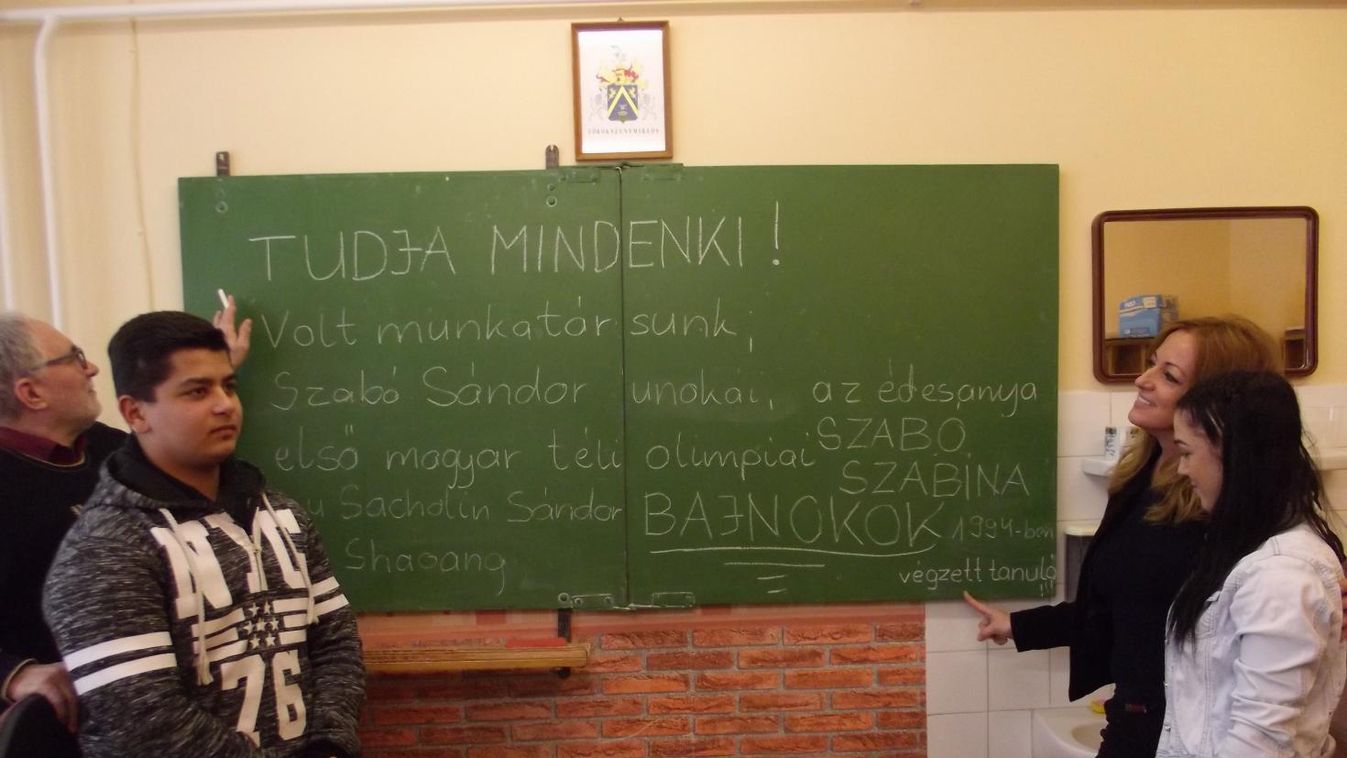 TÖRÖKSZENTMIKLÓS
TUDJA MINDENKI!
Volt munkatársunk,
Szabó Sándor unokái, az édesanya
SZABÓ
első magyar téli olimpiai
SZABINA
u Sacholin Sándor BAJNOKOK 1994-ben
Shaoang végzett tanuló
!!!
NYC
76